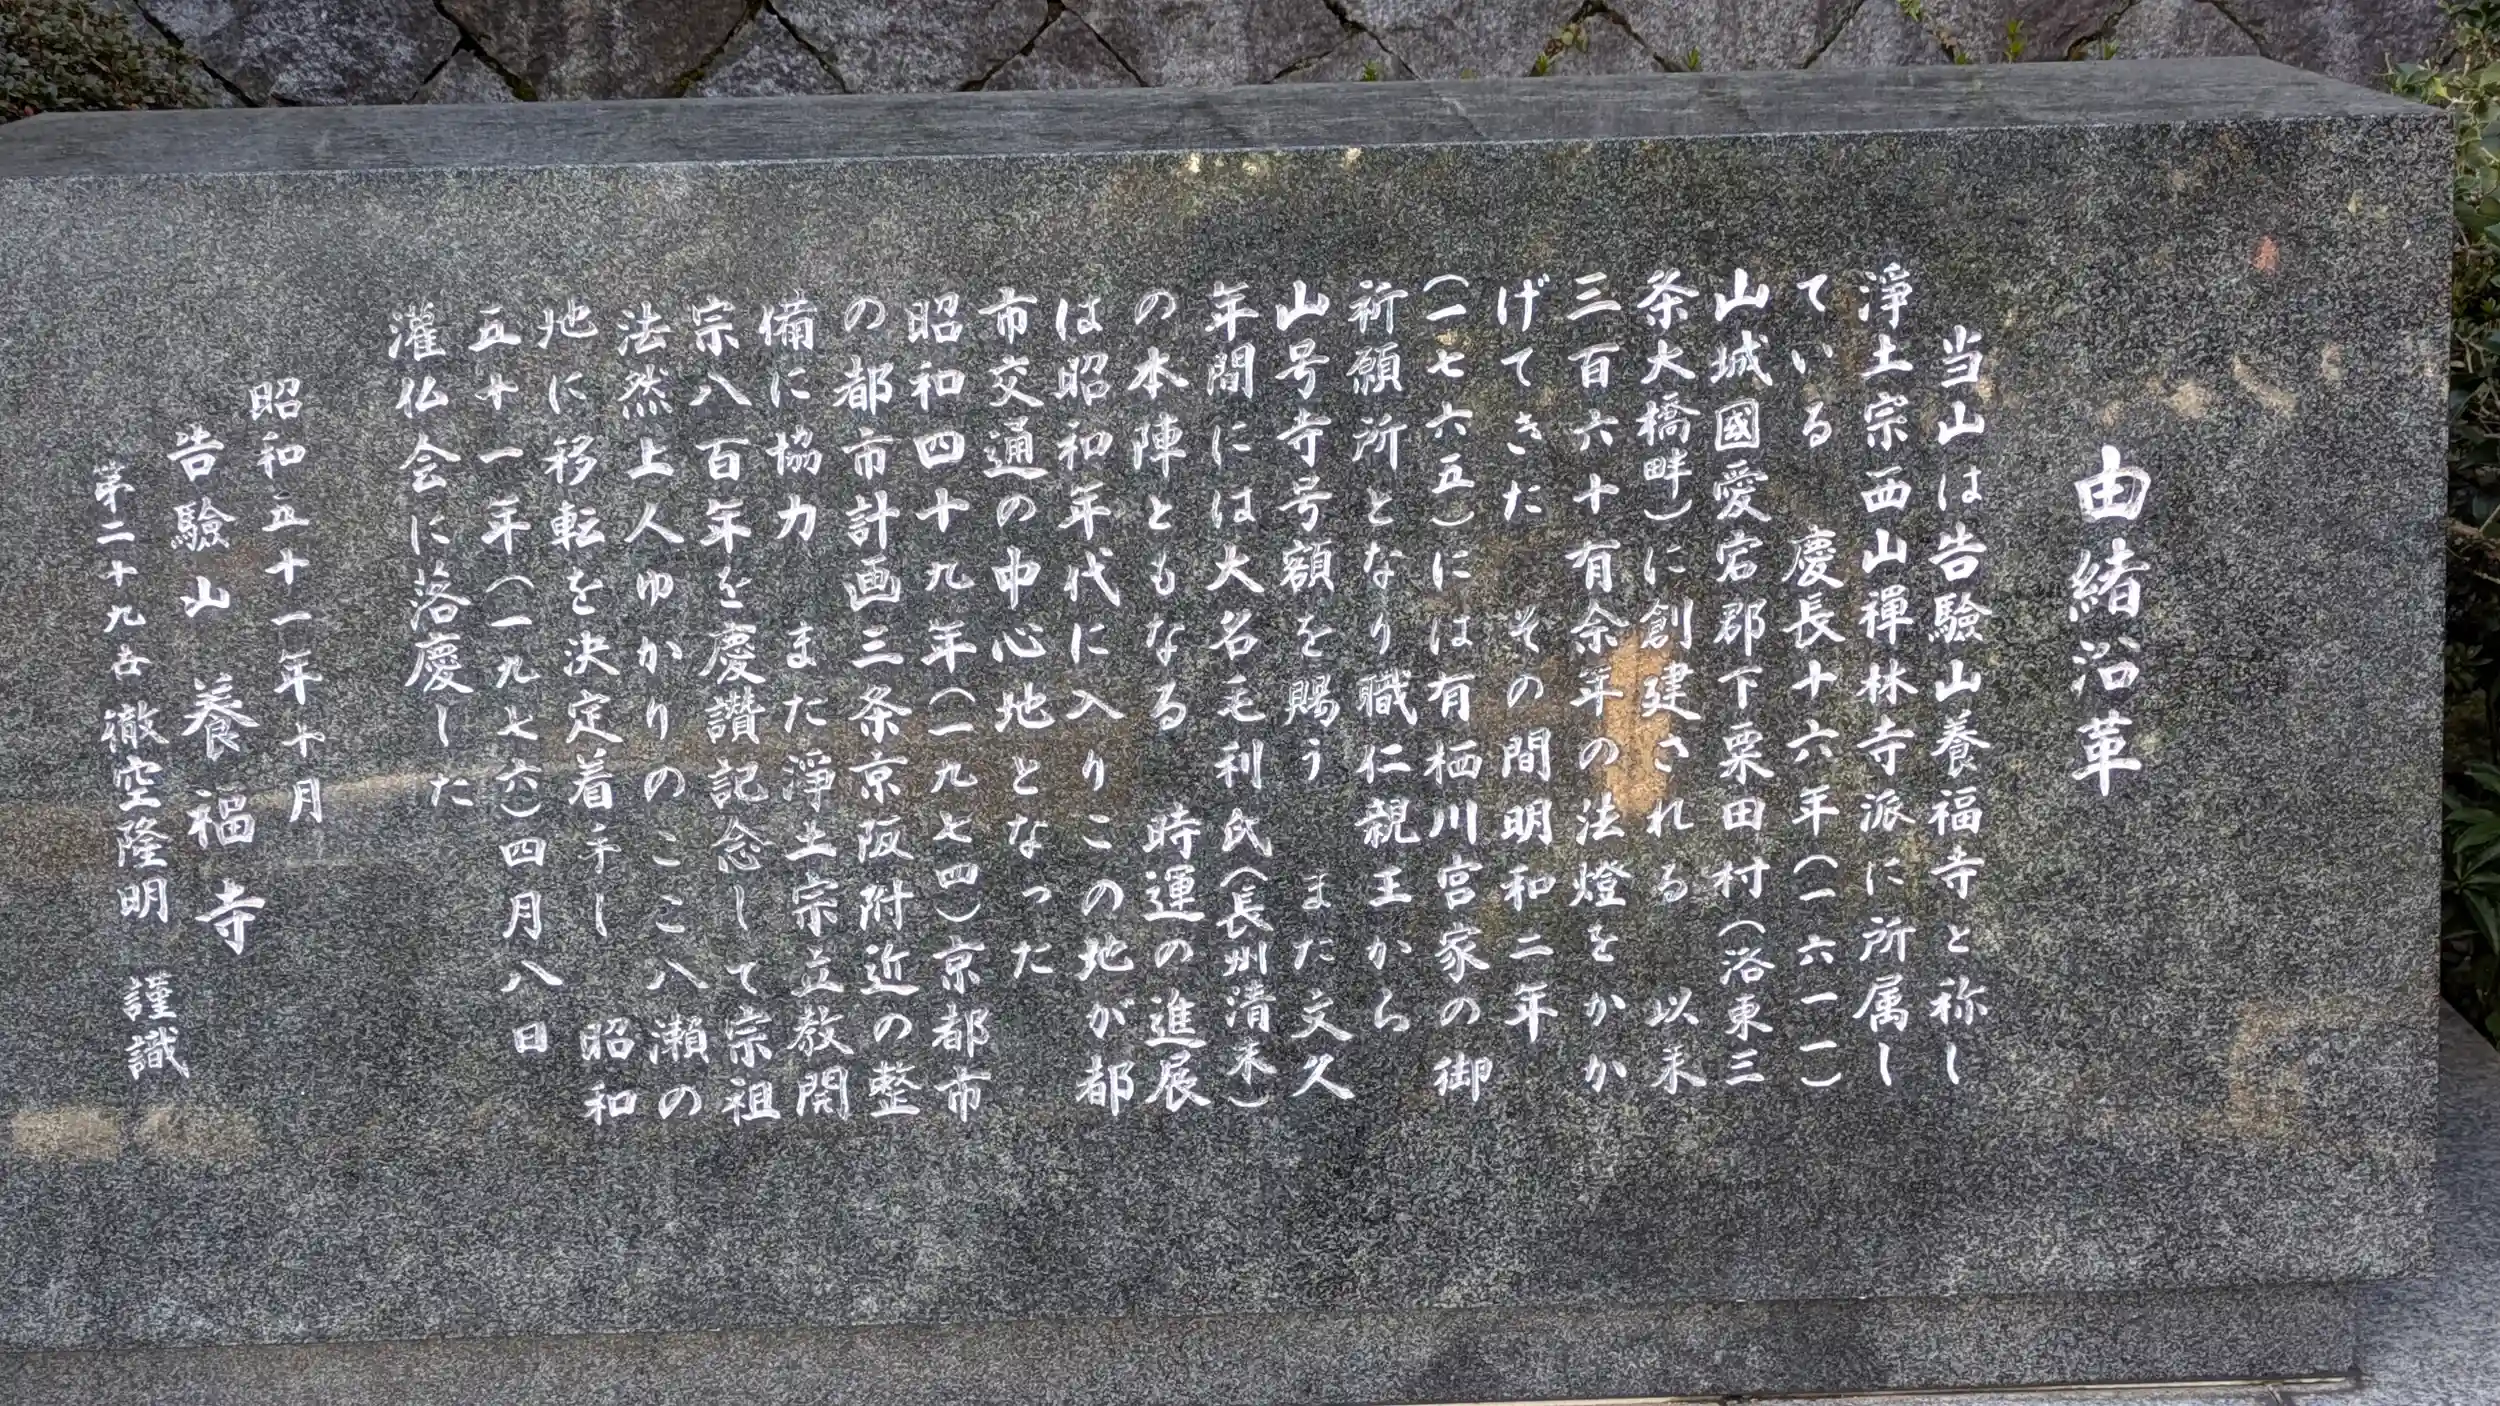 由緒沿革
当山は告驗山養福寺と称し
淨土宗西山禪林寺派に所属し
ている　慶長十六年（一六一一）
山城國愛宕郡下粟田村（洛東三
条大橋畔）に創建される　以来
三百六十有余年の法燈をかか
げてきた　その間明和二年
（一七六五）には有栖川宮家の御
祈願所となり職仁親王から
山号寺号額を賜う　また文久
年間には大名毛利氏（長州清末）
の本陣ともなる　時運の進展
は昭和年代に入りこの地が都
市交通の中心地となった
昭和四十九年（一九七四）京都市
の都市計画三条京阪附近の整
備に協力　また淨土宗立教開
宗八百年を慶讚記念して宗祖
法然上人ゆかりのここ八瀬の
地に移転を決定着手し　昭和
五十一年（一九七六）四月八日
灌仏会に落慶した
昭和五十一年十月
告驗山　養福寺
第二十九世　徹空隆明　謹識